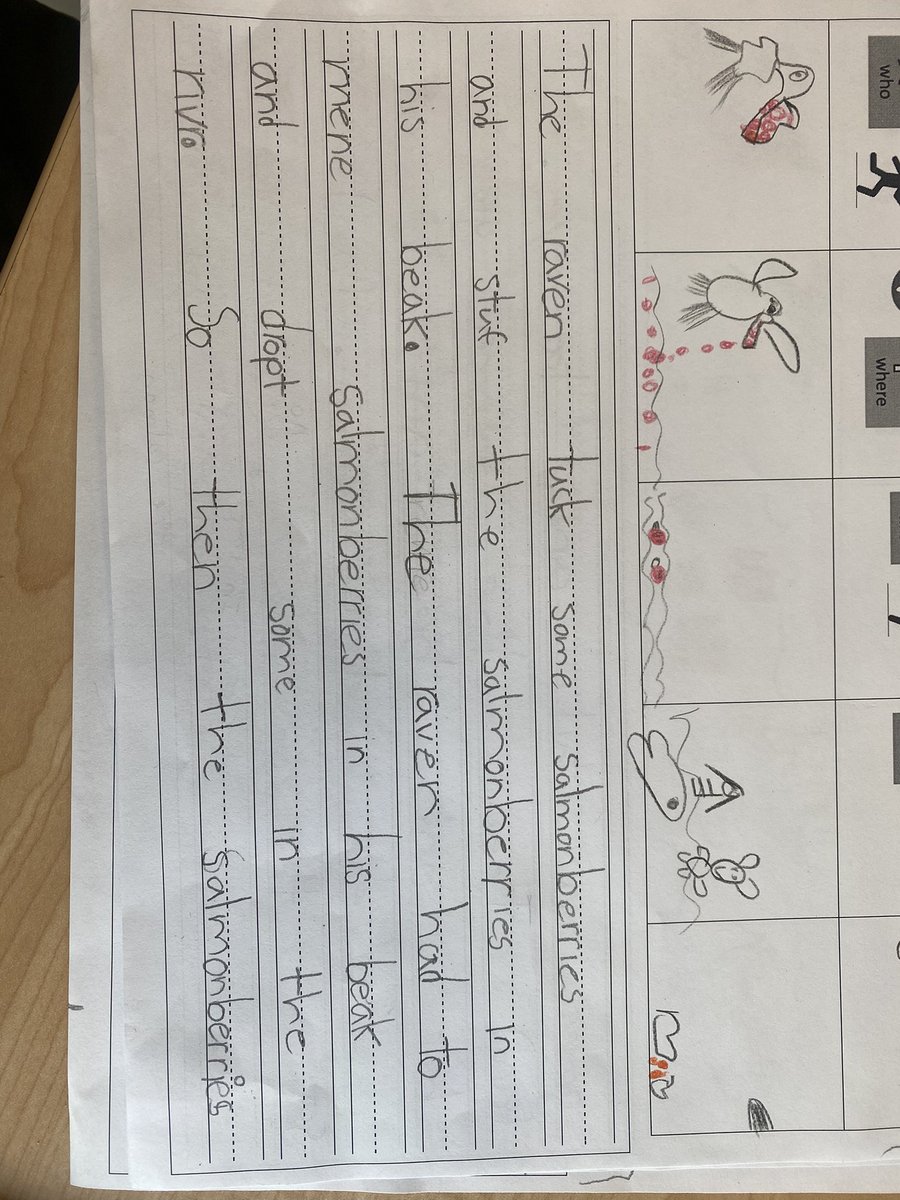 who
where
The raven tuck some salmonberries
and stuf the salmonberries in
his beak. The raven had to
mene salmonberries in his beak
and dropt some in the
rivr. So then the salmonberries